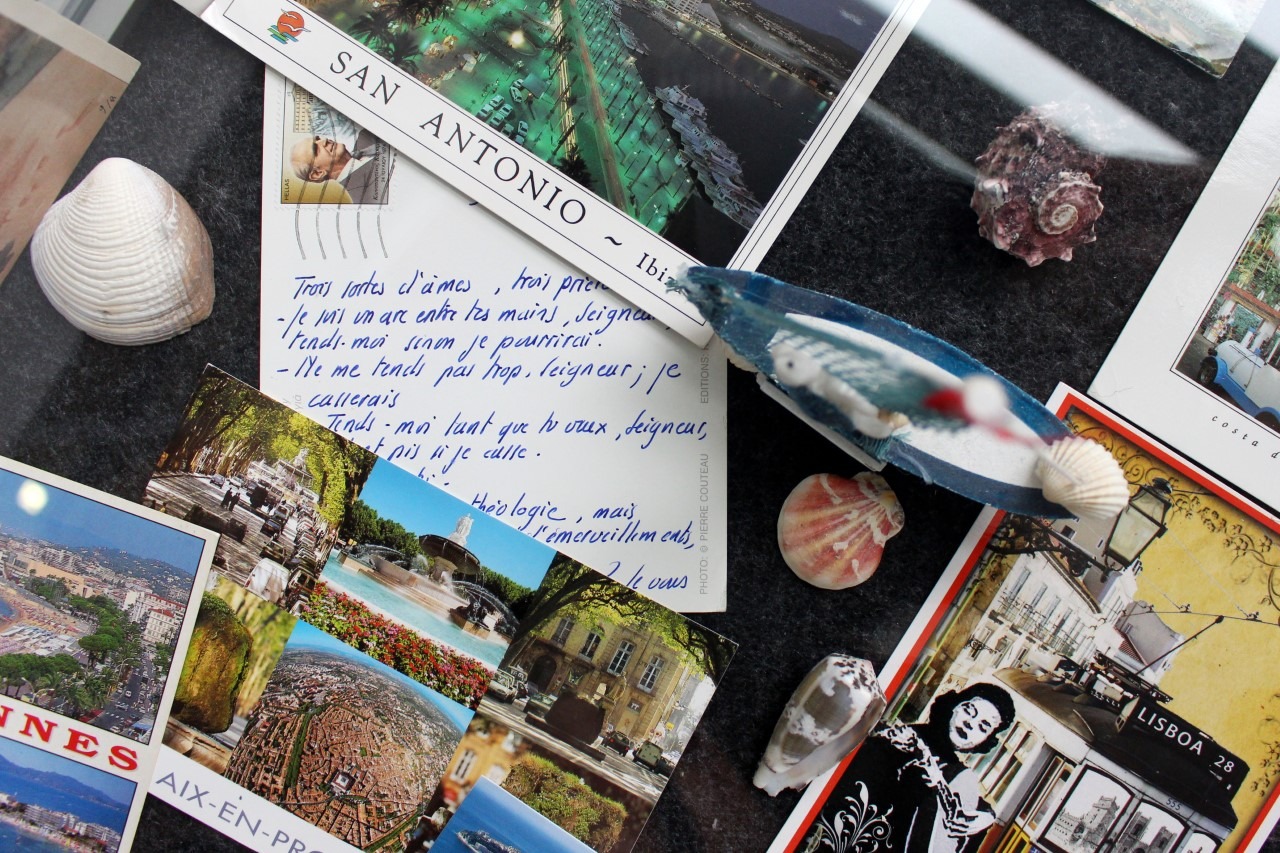 SAN ANTONIO ~ Ibiz
HELLAS
Trois sortes d'âmes, trois
- Je suis un arc entre tes mains, Seigneur,
tends-moi sinon je pourrirai.
- Ne me tends pas trop, Seigneur ; je
casserais
Tends-moi tant que tu veux, Seigneur,
et pis si je casse.
théologie, mais
l'émerveillements,
? Je vous
PHOTO: © PIERRE COUTEAU EDITIONS
NNES
AIX-EN-PRO
costa d
LISBOA 28
555